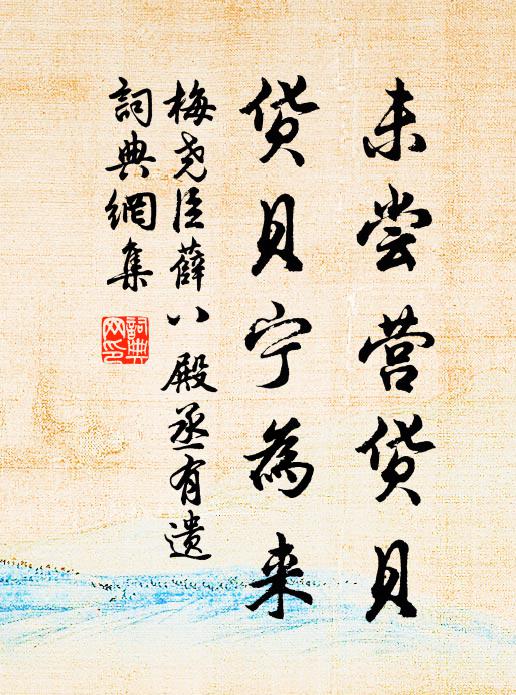 未尝营货贝
货贝宁為来
梅尧臣薛八殿丞有遗
詞典網集
詞典網印